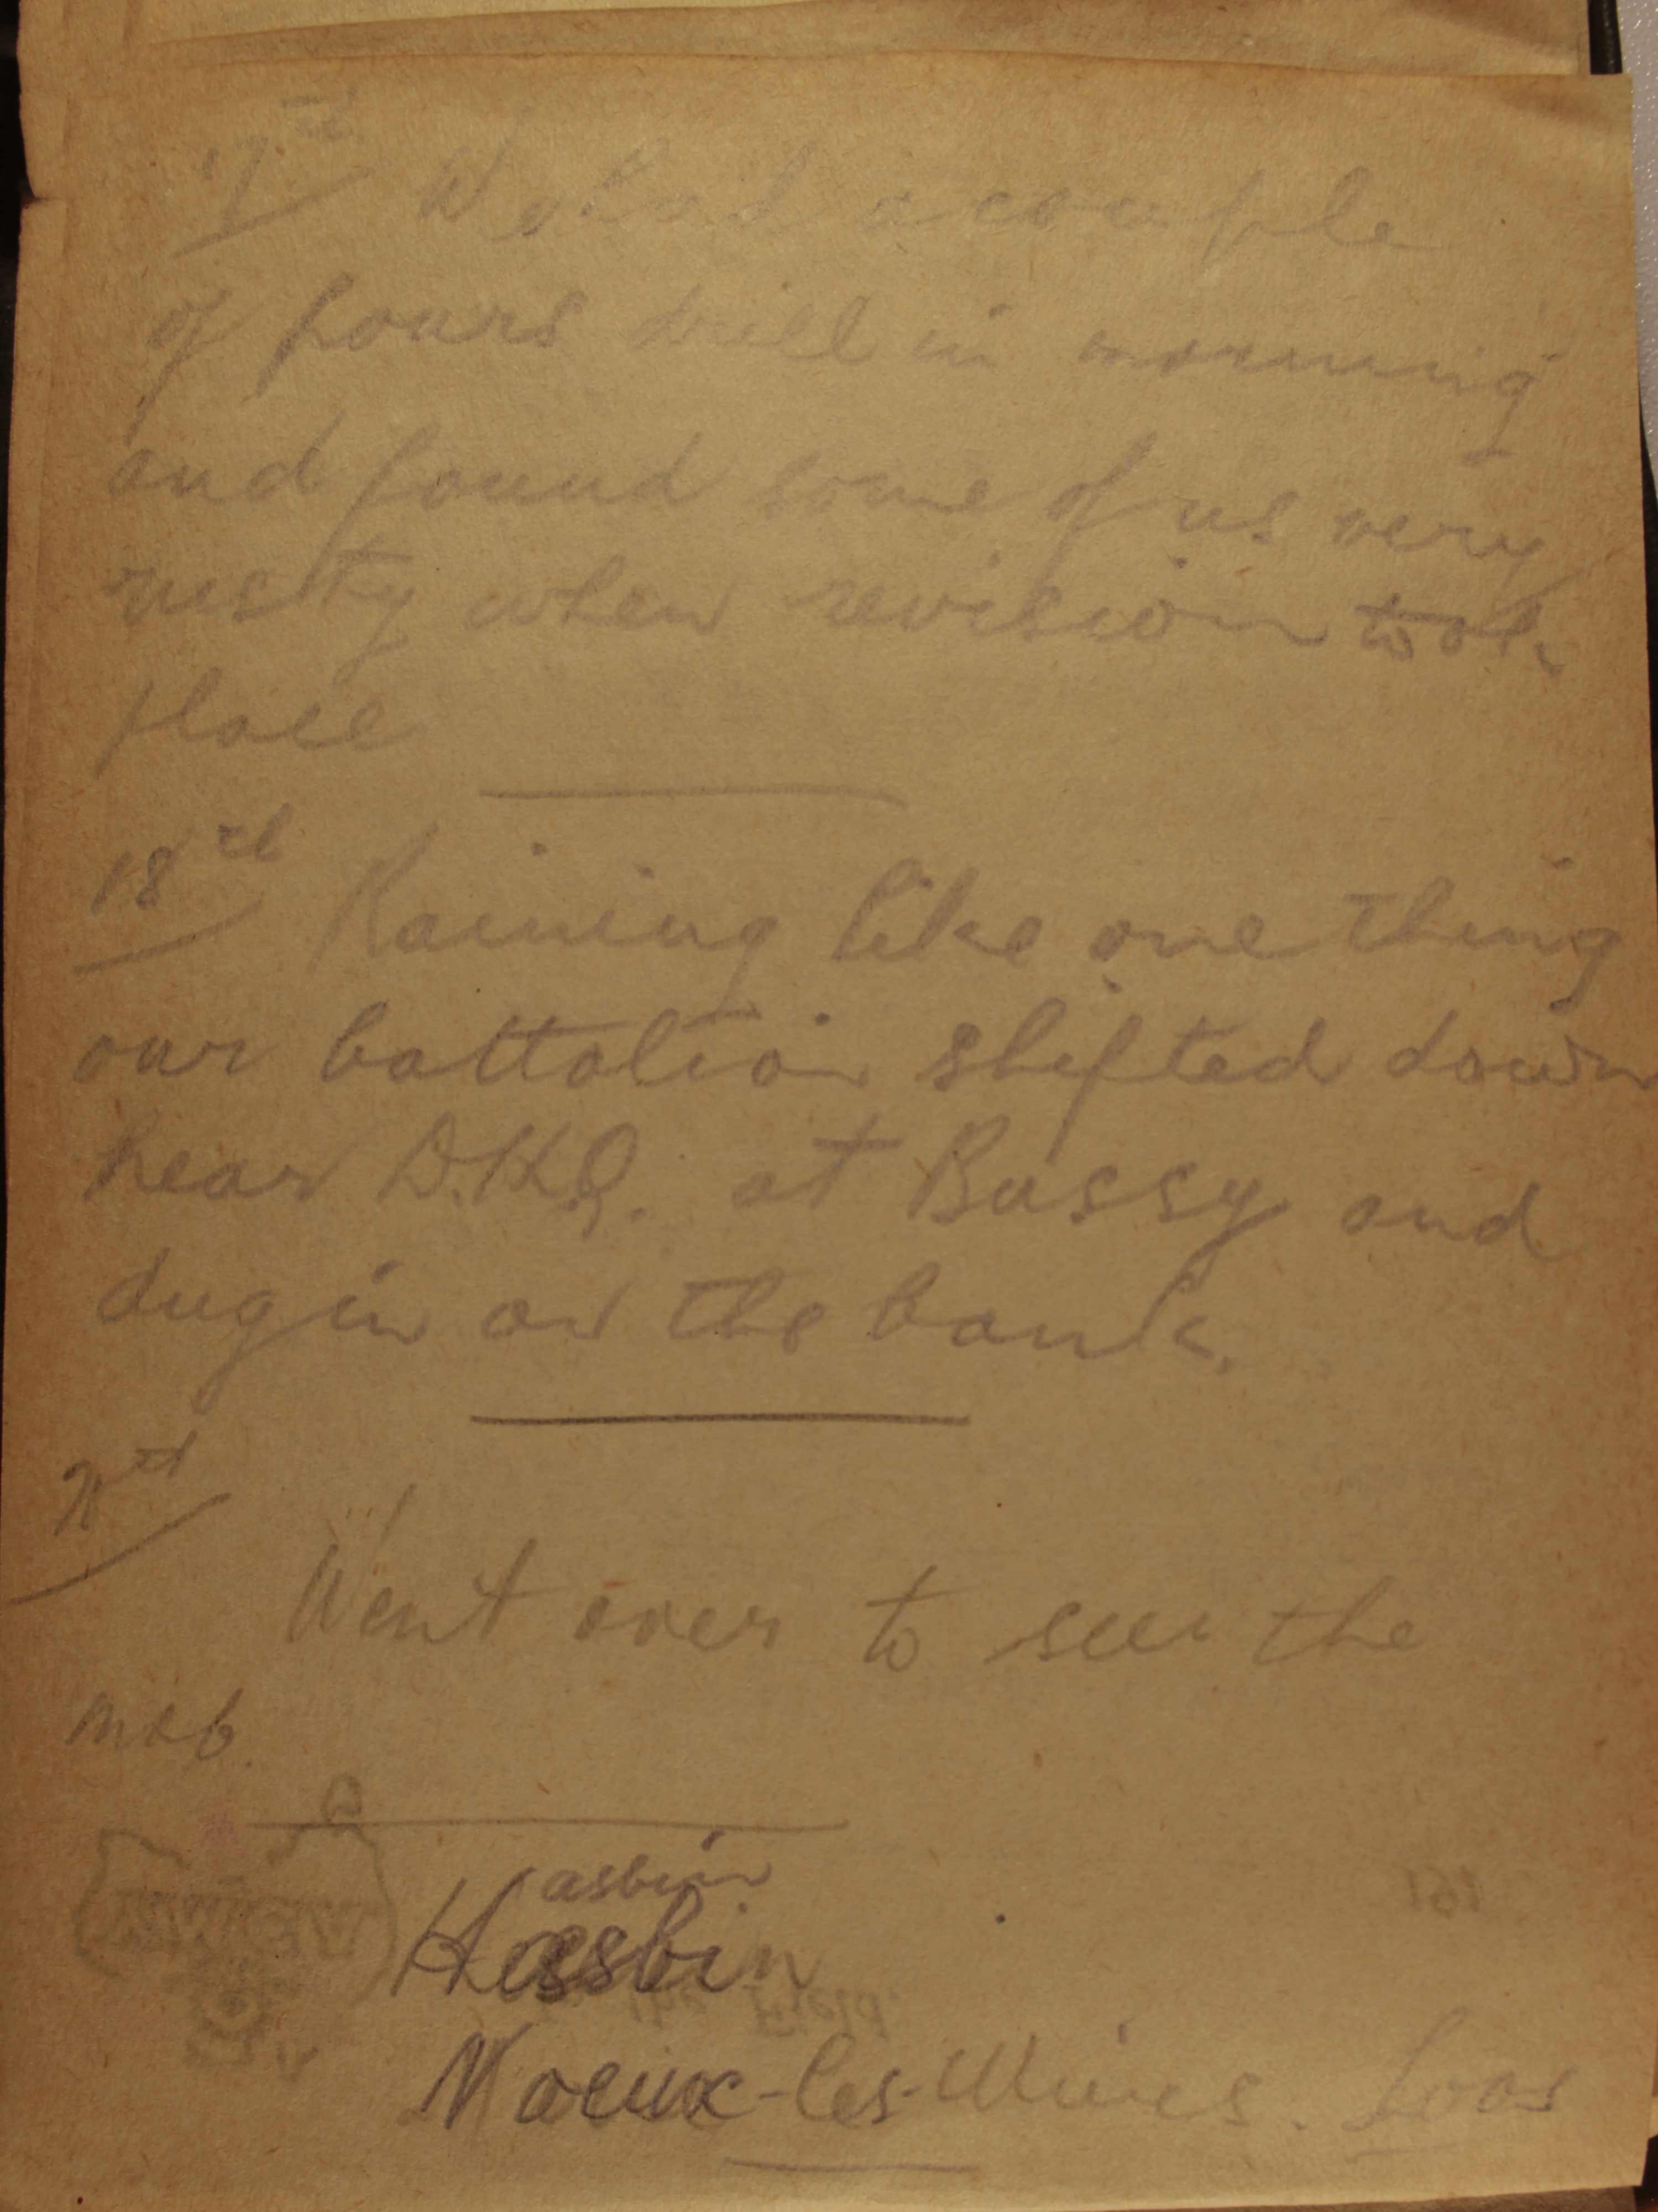 17th We had a couple
of hours drill in morning
and found some of us very
rusty when revision took
place
18th Raining like one thing
our battalion shifted down
near D.H.Q. at Bussy and
dug in on the bank.
Went over to see the
mob.
asbin
Hasbin
Noeux-les-Mines. Loos
161